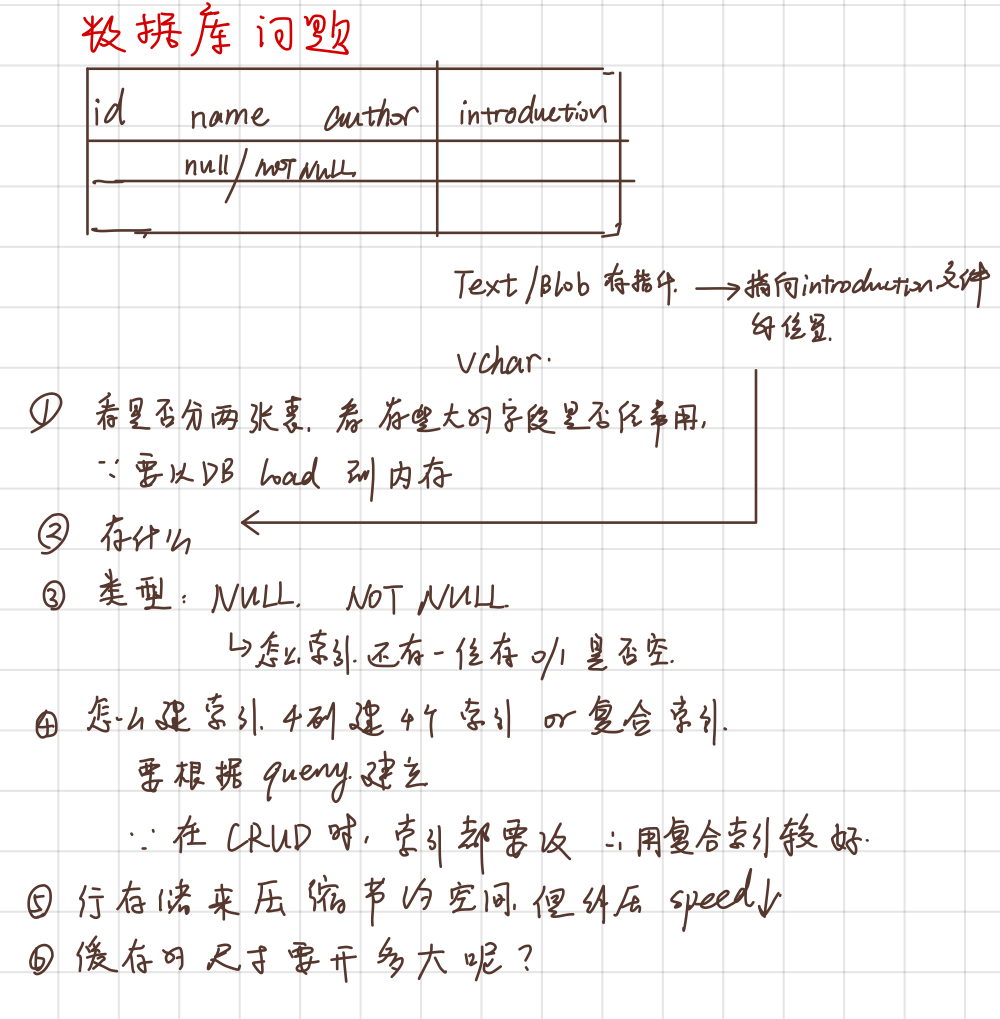 数据库问题
id name author introduction
null/NOT NULL
Text/Blob 存指针. → 指向introduction文件
的位置.
vchar.
① 看是否分两张表. 看存些大的字段是否经常用,
∵ 要从DB load 到内存
② 存什么
③ 类型: NULL. NOT NULL.
↳怎么索引. 还有一位存 0/1 是否空.
④ 怎么建索引. 4列建4个索引 or 复合索引.
要根据 query 建立
∵ 在 CRUD 时, 索引都要改 ∴ 用复合索引较好.
⑤ 行存储来压缩节约空间, 但解压 speed↓
⑥ 缓存的尺寸要开多大呢?